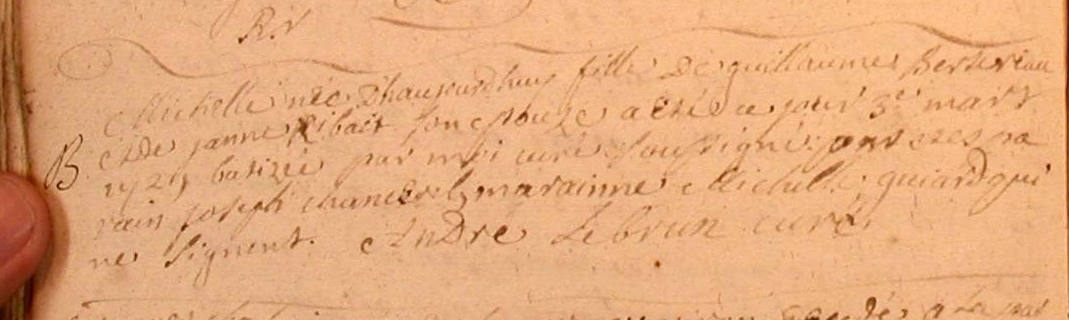 R.V
Michelle née D'haujourdhuy fille De guillaume Berteriau
B. et de janne Ribait son epouze a eté ce jour 3e mars
1729 batizée par moi curé soussigné pa
rain joseph chancerel marainne Michelle guiard qui
ne signent. André Lebrun curé